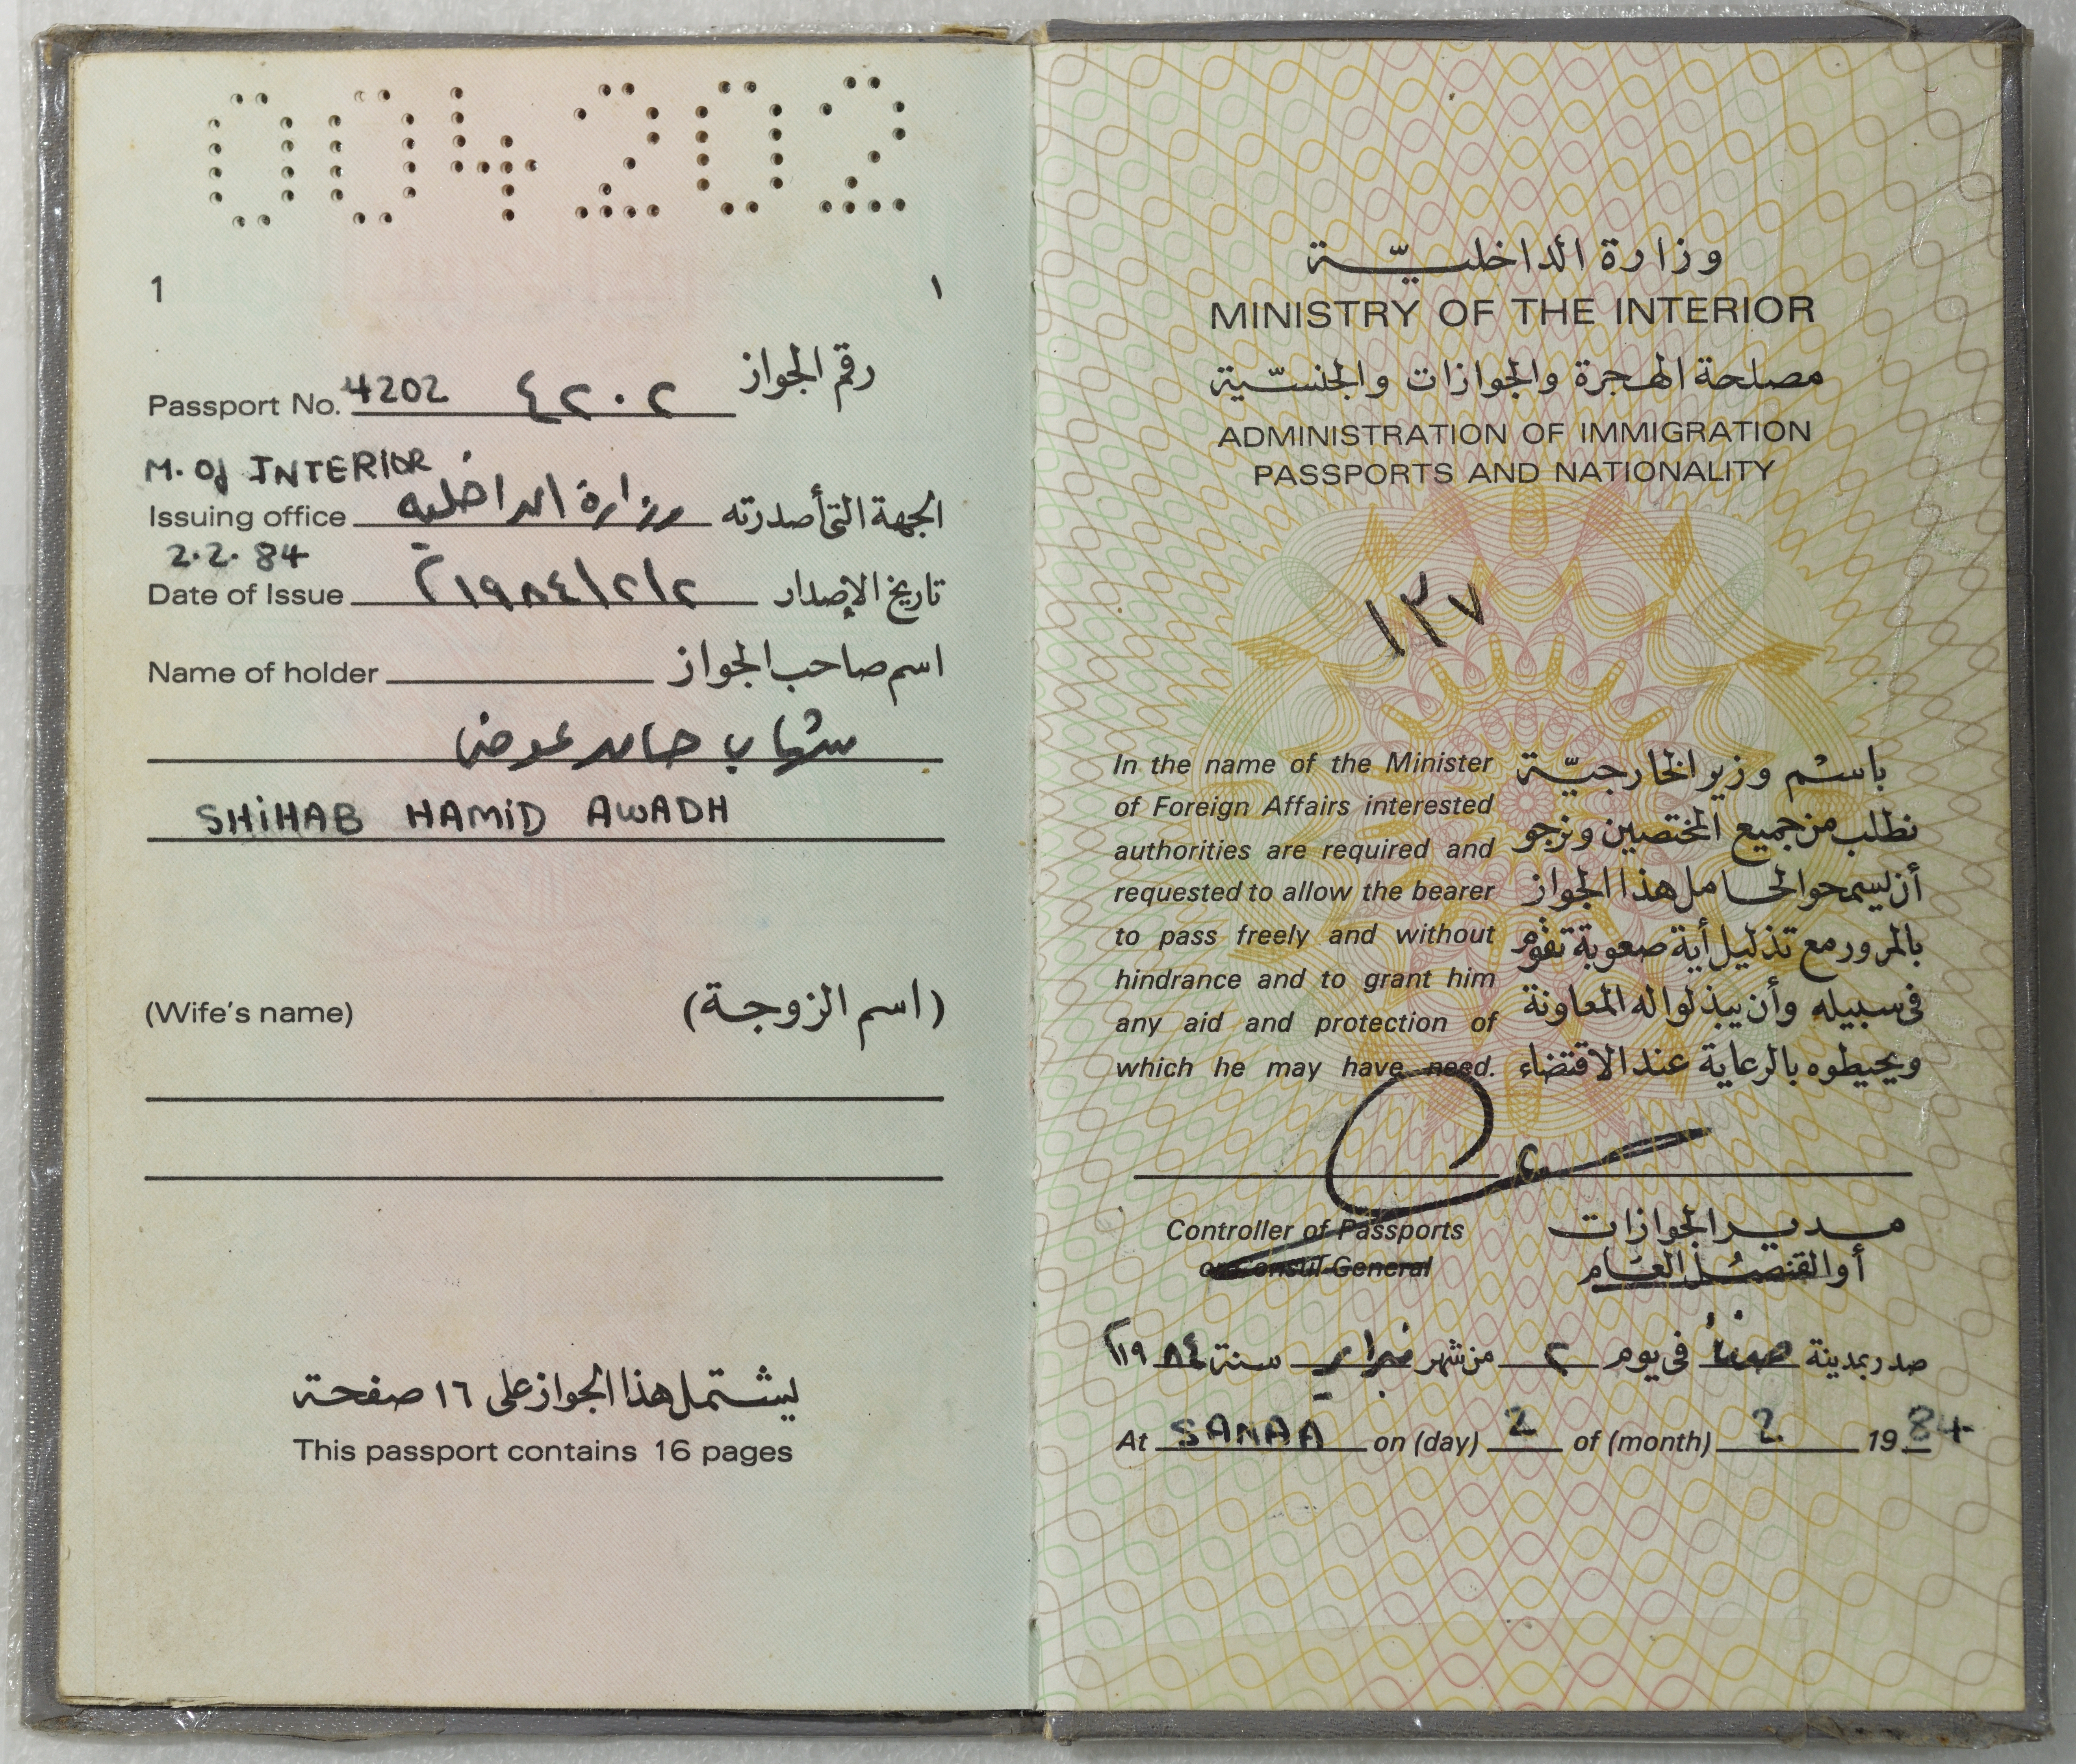 004202
1 ١
رقم الجواز
Passport No. 4202 ٤٢٠٢
M. Of INTERIOR
Issuing office وزارة الداخليه الجهة التي أصدرته
2.2.84
Date of Issue ٢/٢/١٩٨٤م تاريخ الإصدار
Name of holder اسم صاحب الجواز
شهاب حامد عوض
SHIHAB HAMID AWADH
(Wife's name) (اسم الزوجة)
يشتمل هذا الجواز على ١٦ صفحة
This passport contains 16 pages
وزارة الداخليّة
MINISTRY OF THE INTERIOR
مصلحة الهجرة والجوازات والجنسّية
ADMINISTRATION OF IMMIGRATION
PASSPORTS AND NATIONALITY
١٣٧
In the name of the Minister
of Foreign Affairs interested
authorities are required and
requested to allow the bearer
to pass freely and without
hindrance and to grant him
any aid and protection of
which he may have need.
باسم وزير الخارجيّة
نطلب من جميع المختصين ونرجو
أن يسمحوا لحامل هذا الجواز
بالمرور مع تذليل أية صعوبة تقوم
في سبيله وأن يبذلوا له المعاونة
ويحيطوه بالرعاية عند الاقتضاء
Controller of Passports
or Consul General
مدير الجوازات
أو القنصل العام
صدر بمدينة صنعاء في يوم ٢ من شهر فبراير سنة ١٩٨٤م
At SANAA on (day) 2 of (month) 2 1984